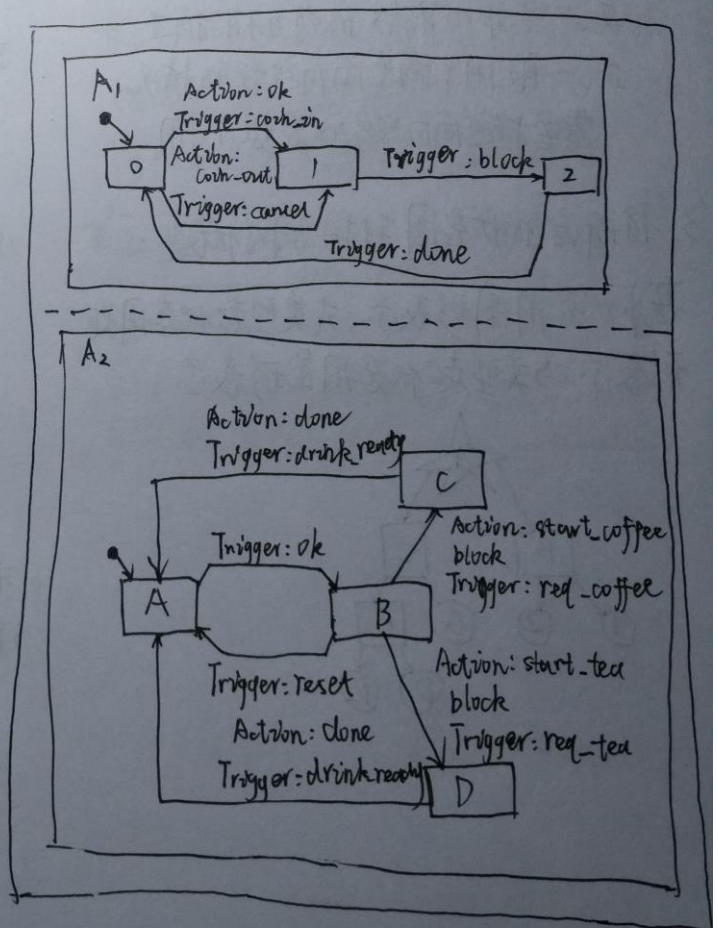 A1
Action: ok
Trigger: coin_in
0
Action:
coin_out
1
Trigger: block
2
Trigger: cancel
Trigger: done
A2
Action: done
Trigger: drink_ready
C
Trigger: ok
Action: start_coffee
block
Trigger: req_coffee
A
B
Trigger: reset
Action: start_tea
block
Trigger: req_tea
Action: done
Trigger: drink_ready
D